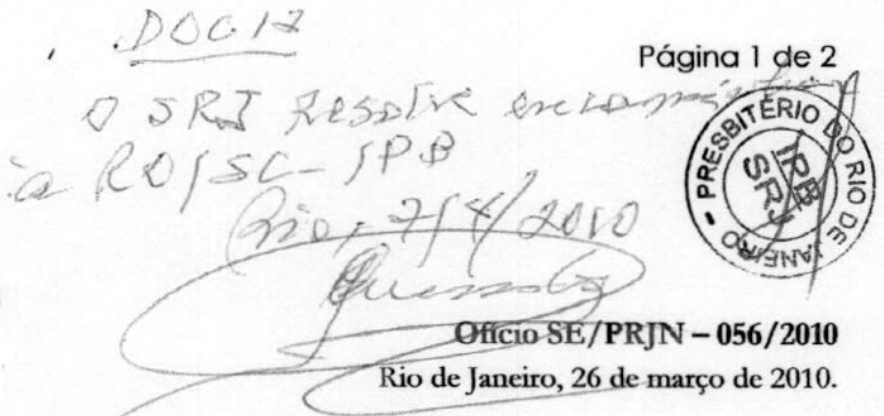 DOC 17
Página 1 de 2
O SRJ Resolve encaminhar
à RO/SC-IPB
Rio, 7/4/2010
PRESBITÉRIO DO RIO DE JANEIRO -
IPB
SRJ
Ofício SE/PRJN – 056/2010
Rio de Janeiro, 26 de março de 2010.